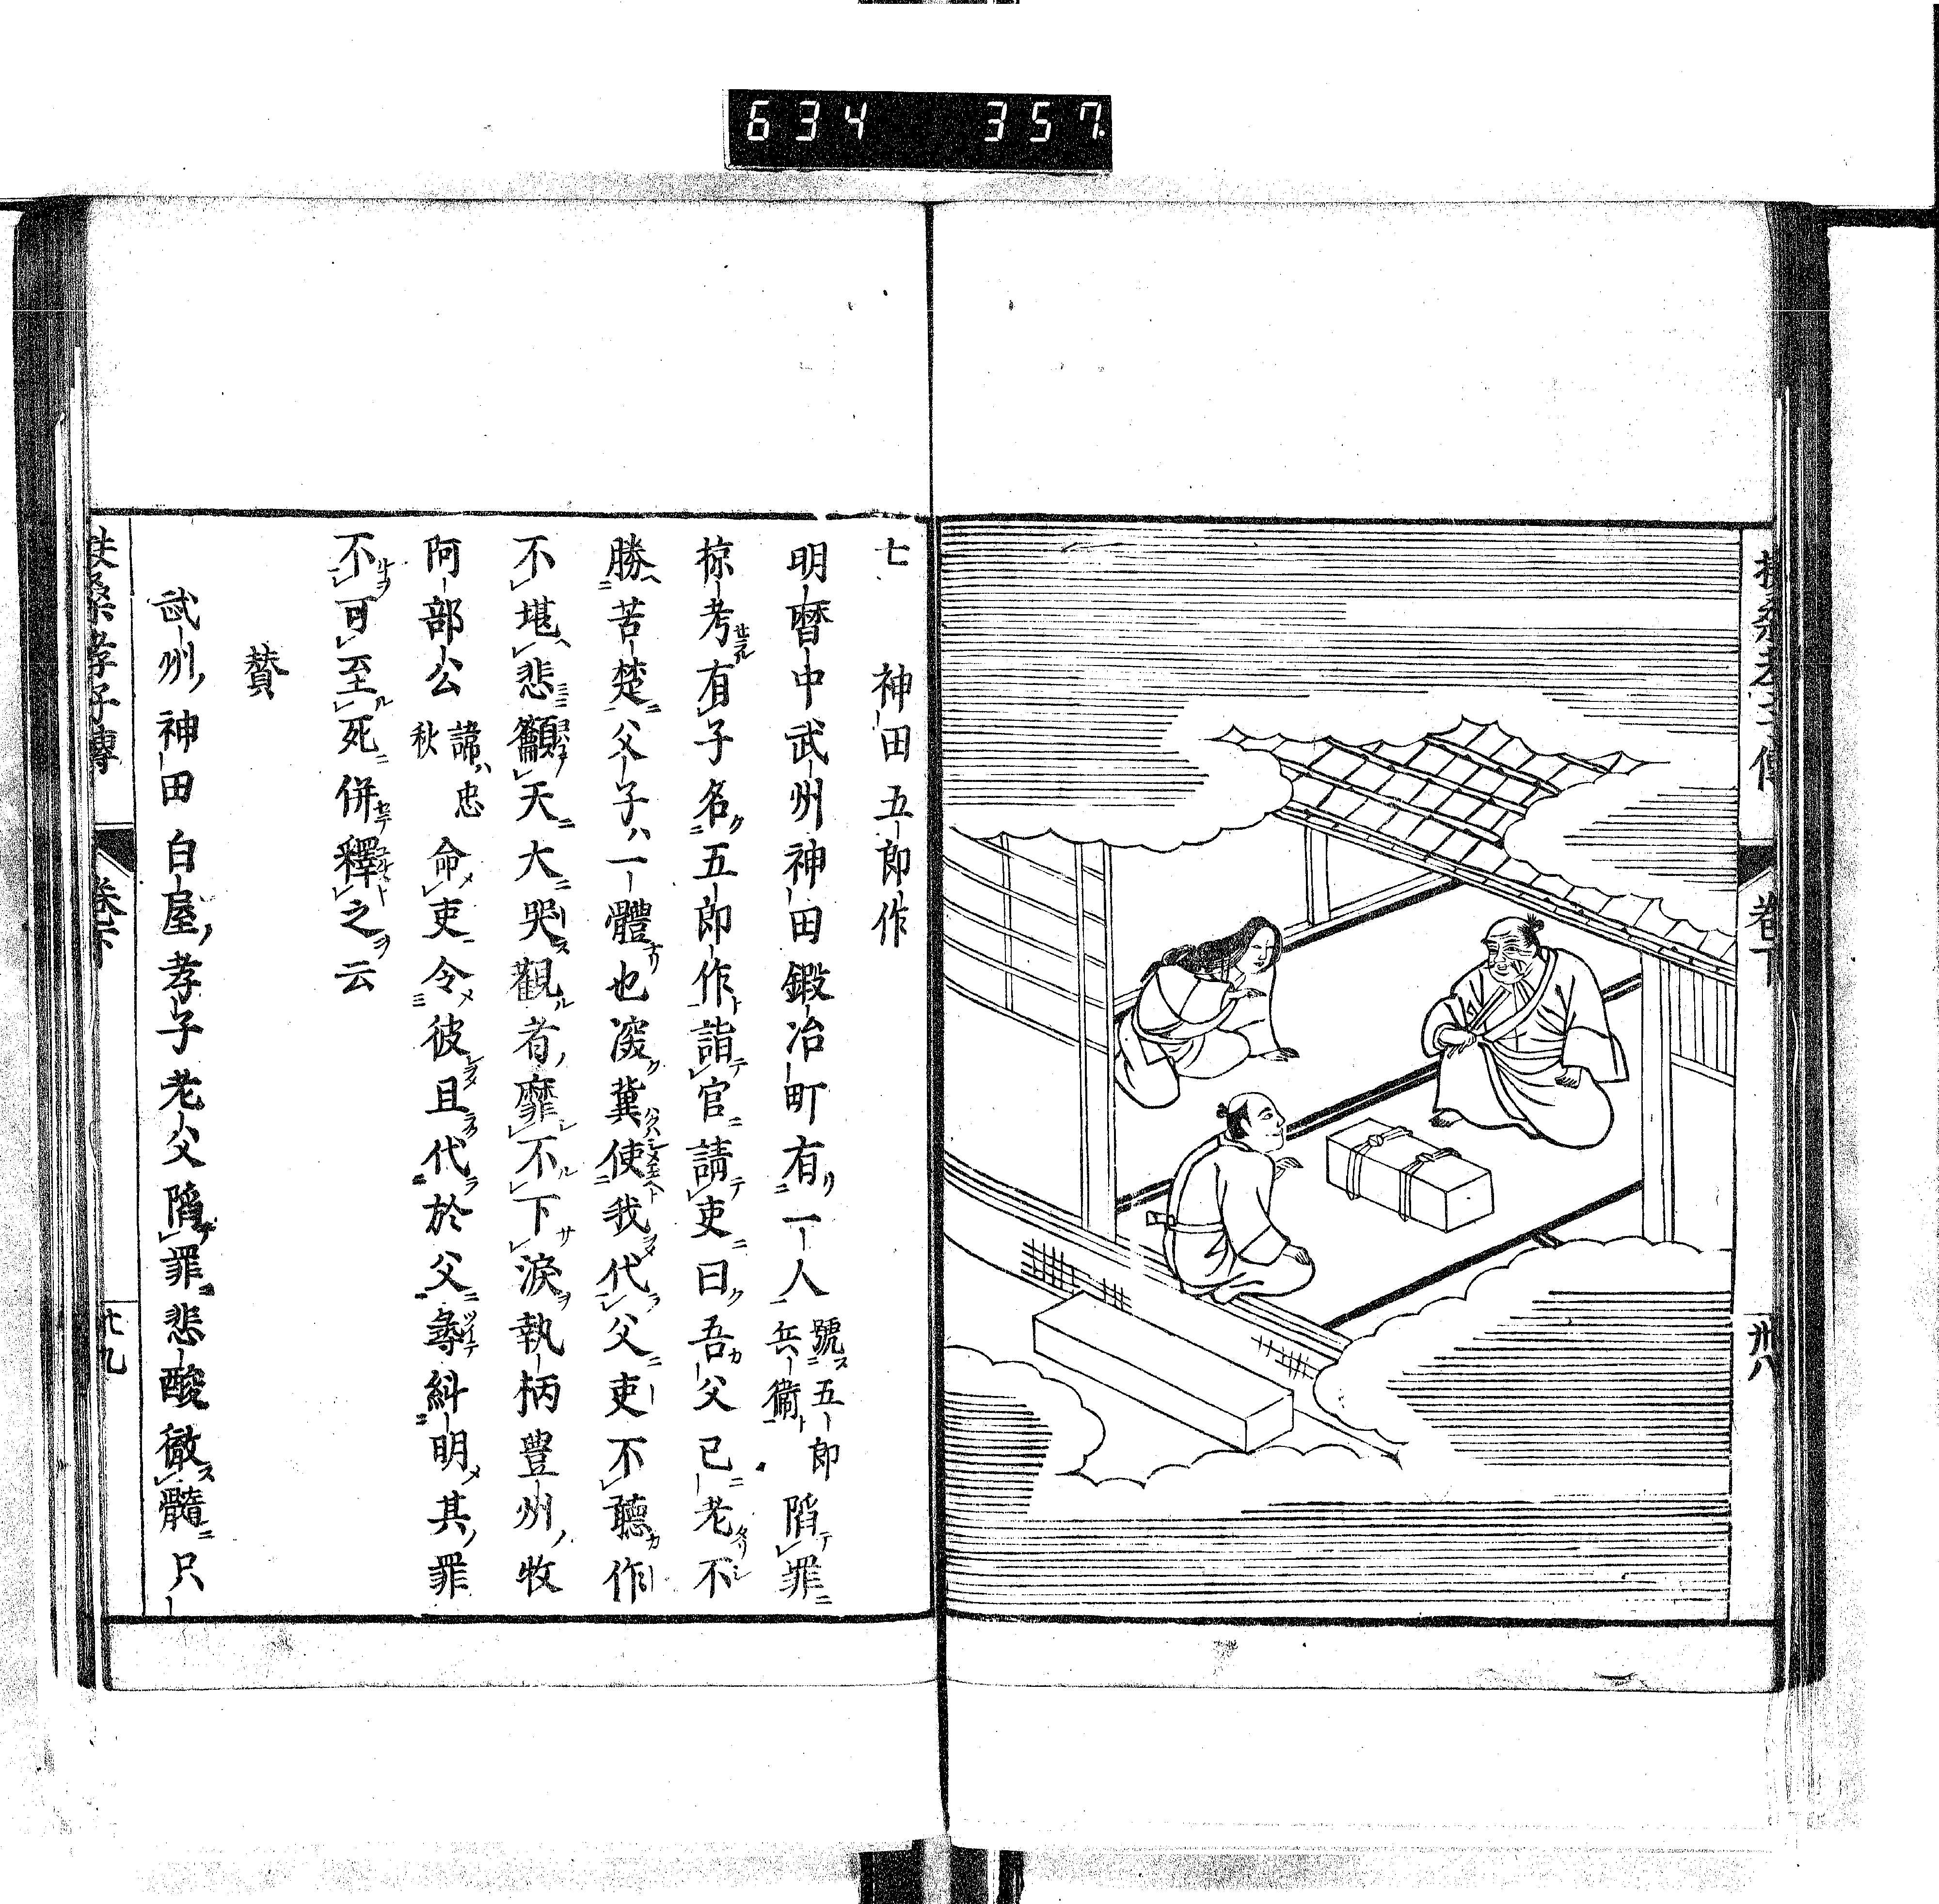 634 357
扶桑孝子傳
卷下
卅八
七 神田五郎作
明暦中武州神田鍛冶町有一人號五郎兵衞陷罪
掠考有子名五郎作詣官請吏曰吾父已老不
勝苦楚父子一體也深冀使我代父吏不聽作
不堪悲籲天大哭觀者靡不下涙執柄豊州牧
阿部公諱忠秋命吏令彼且代於父尋糾明其罪
不可至死併釋之云
賛
武州神田白屋孝子老父陷罪悲酸徹髓只
扶桑孝子傳
卷下